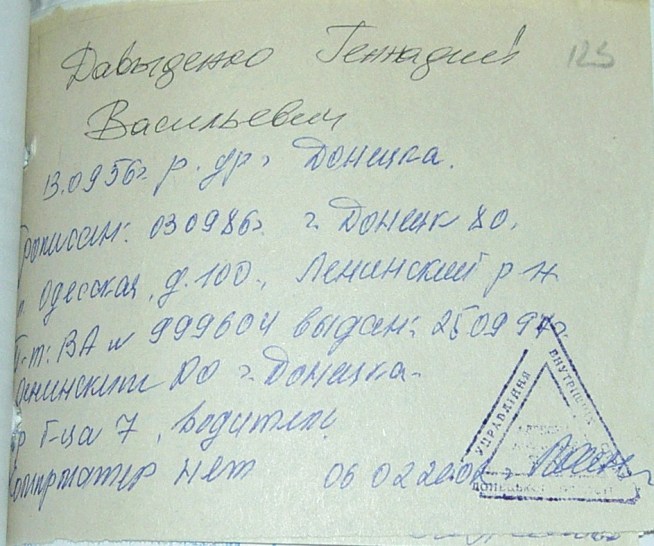 Давыденко Геннадий 125
Васильевич
13.0956г. р. ур. г. Донецка.
Прописан: 030986г. г. Донецк 80,
Одесская, д. 100., Ленинский р-н
П-т: ВА № 999604 выдан: 250997г.
Ленинским РО г. Донецка.
Б-ца 7, водитель.
Компрматер нет 06 02 2001
УПРАВЛІННЯ ВНУТРІШНІХ